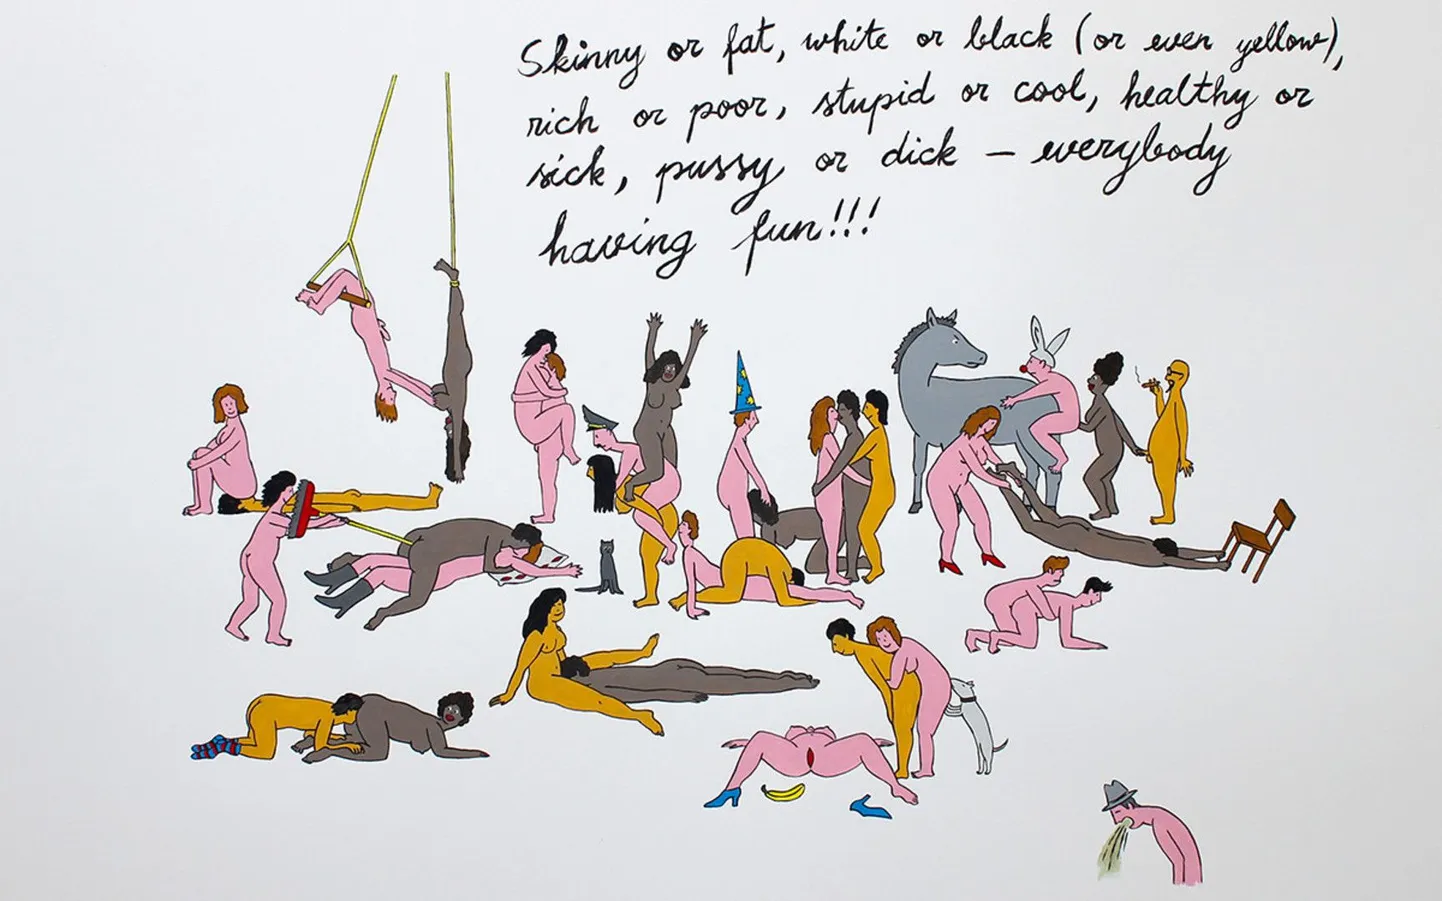 Skinny or fat, white or black (or even yellow),
rich or poor, stupid or cool, healthy or
sick, pussy or dick – everybody
having fun!!!